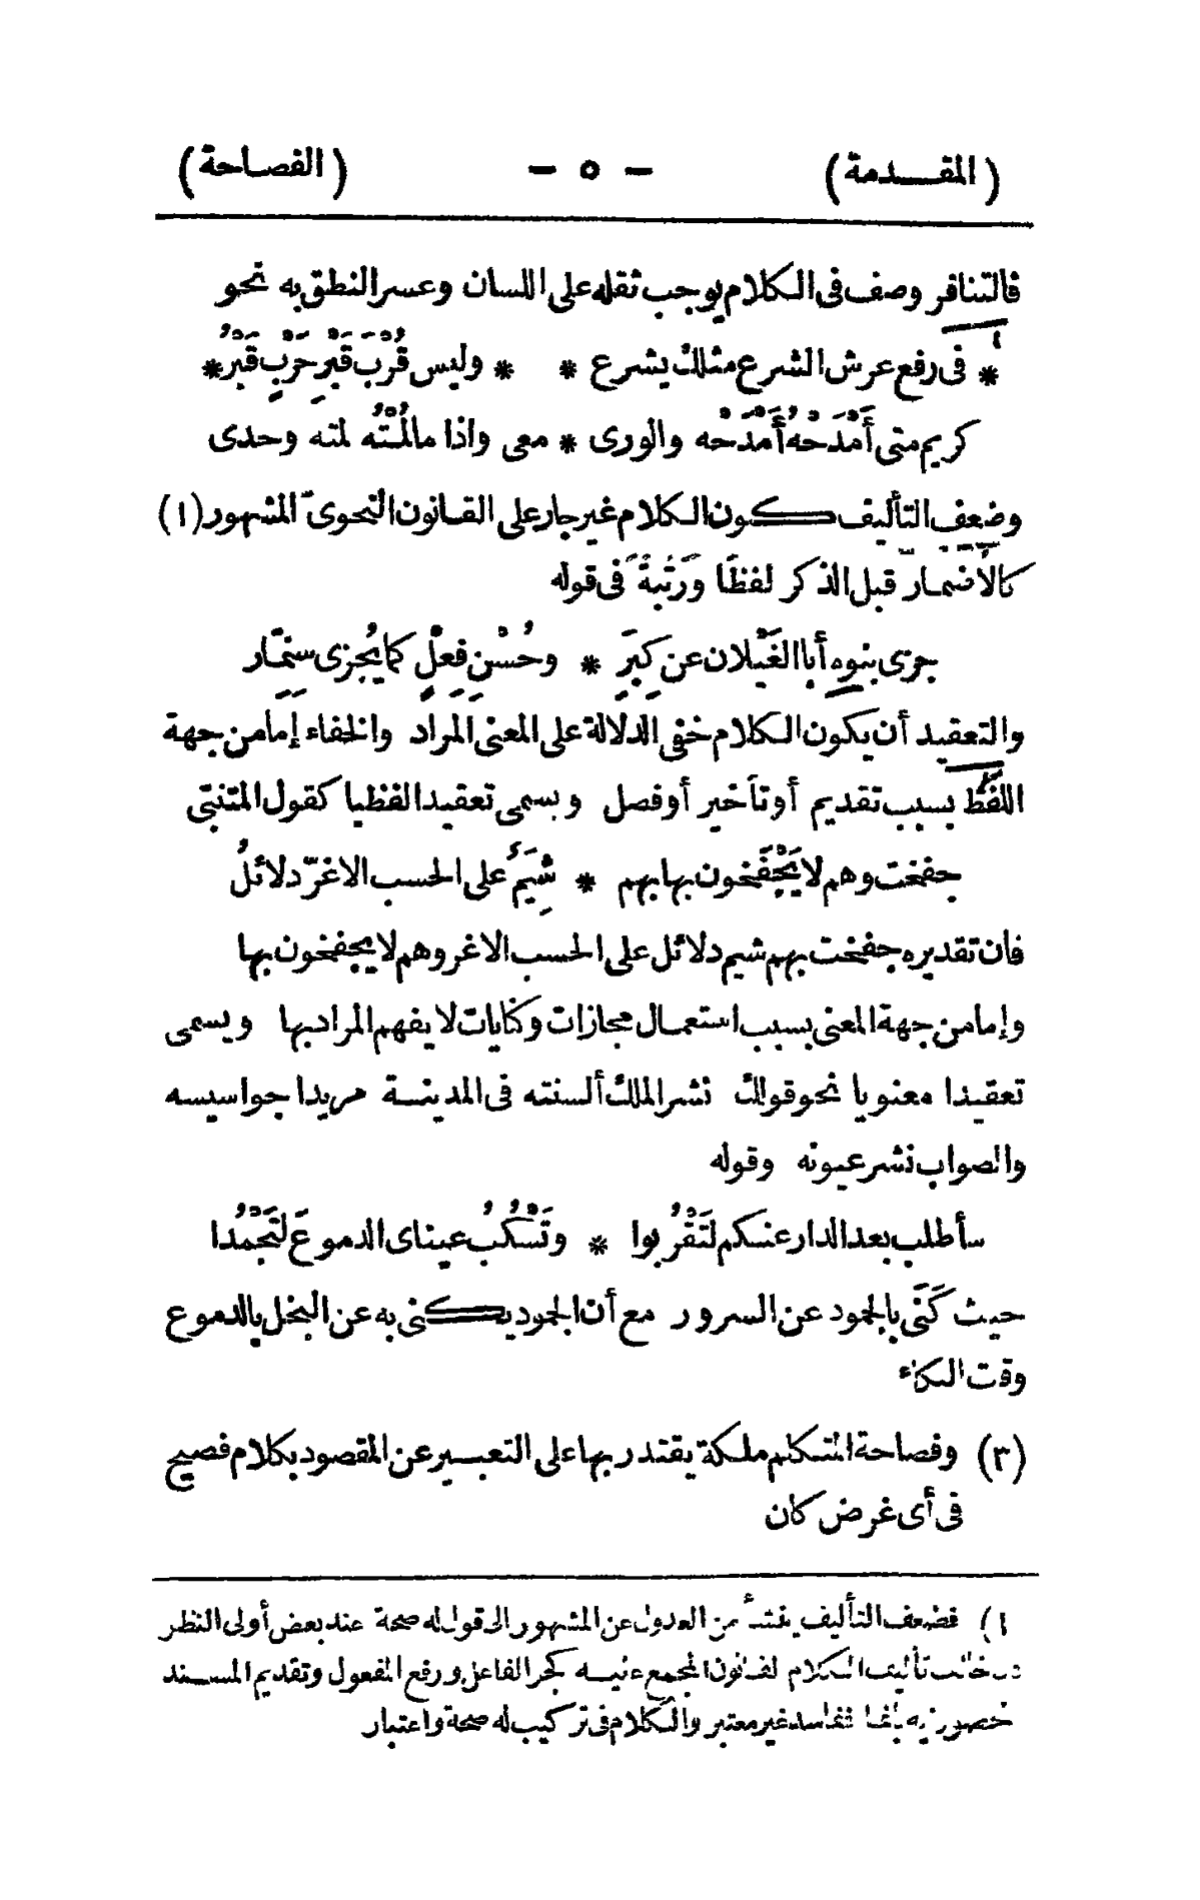 (المقدمة) - ٥ - (الفصاحة)
فالتنافر وصف فى الكلام يوجب ثقله على اللسان وعسر النطق به نحو
* فى رفع عرش الشرع مثلك يشرع * * وليس قُرْبَ قَبْرِ حَرْبٍ قَبْرُ *
كريم متى أَمْدَحْهُ أَمْدَحْه والورى * معى واذا مالُمْتُه لمته وحدى
وضعف التأليف كون الكلام غير جار على القانون النحوىّ المشهور (١)
كالأضمار قبل الذكر لفظًا وَرُتْبةً فى قوله
جزى بنوه أبا الغَيْلان عن كِبَرٍ * وحُسْنِ فِعْلٍ كما يُجزى سِنِمَّار
والتعقيد أن يكون الكلام خفى الدلالة على المعنى المراد والخفاء إما من جهة
اللفظ بسبب تقديم أو تأخير أو فصل ويسمى تعقيدا لفظيا كقول المتنبّى
جفخت وهم لا يَجْفَخون بها بهم * شِيَمٌ على الحسب الاغرّ دلائلُ
فان تقديره جفخت بهم شيم دلائل على الحسب الاغر وهم لا يجفخون بها
وإما من جهة المعنى بسبب استعمال مجازات وكنايات لا يفهم المراد بها ويسمى
تعقيدا معنويا نحو قولك نشر الملك ألسنته فى المدينة مريدا جواسيسه
والصواب نشر عيونه وقوله
سأطلب بعد الدار عنكم لتَقْرُبوا * وتَسْكُبُ عيناى الدموعَ لتَجْمُدا
حيث كَنَّى بالجمود عن السرور مع أن الجمود يكنى به عن البخل بالدموع
وقت البكاء
(٣) وفصاحة المتكلم ملكة يقتدر بها على التعبير عن المقصود بكلام فصيح
فى أى غرض كان
١) فضعف التأليف ينشأ من العدول عن المشهور الى قول له صحة عند بعض أولى النظر
خالف تأليف الكلام القانون المجمع عليه كجر الفاعل ورفع المفعول وتقديم المسند
المحصور فيه بانما ففاسد غير معتبر والكلام فى تركيب له صحة واعتبار